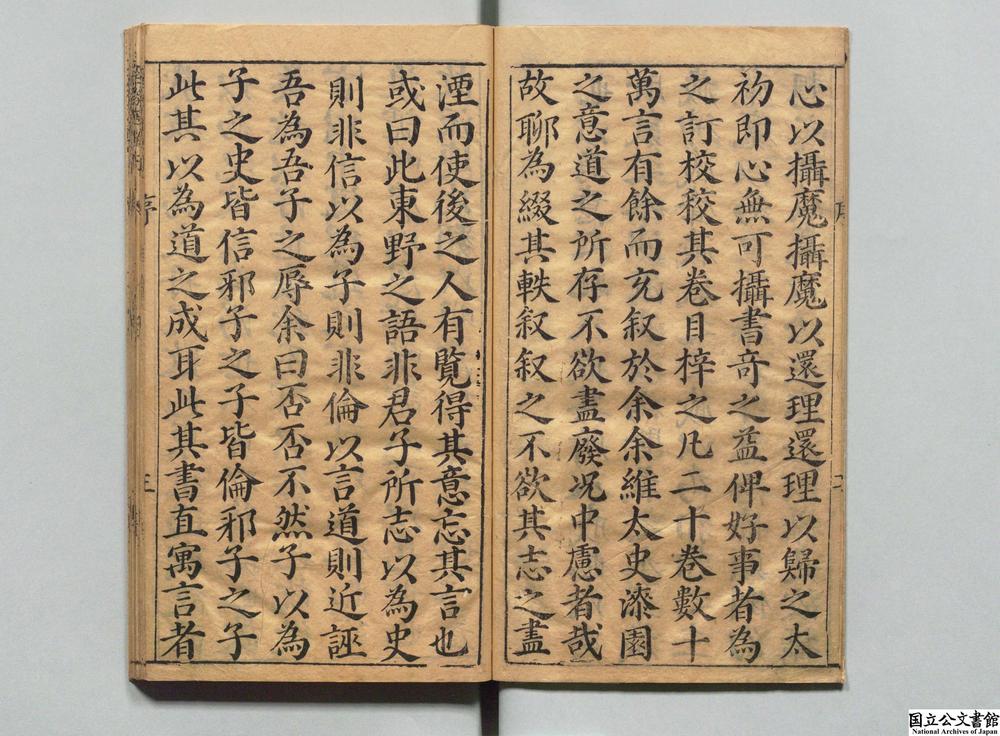 心以攝魔攝魔以還理還理以歸之太
初即心無可攝書奇之益俾好事者為
之訂校校其卷目梓之凡二十卷數十
萬言有餘而充叙於余余維太史漆園
之意道之所存不欲盡廢况中慮者哉
故聊為綴其軼叙叙之不欲其志之盡
湮而使後之人有覽得其意忘其言也
或曰此東野之語非君子所志以為史
則非信以為子則非倫以言道則近誣
吾為吾子之辱余曰否否不然子以為
子之史皆信邪子之子皆倫邪子之子
此其以為道之成耳此其書直寓言者
序
三
国立公文書館
National Archives of Japan